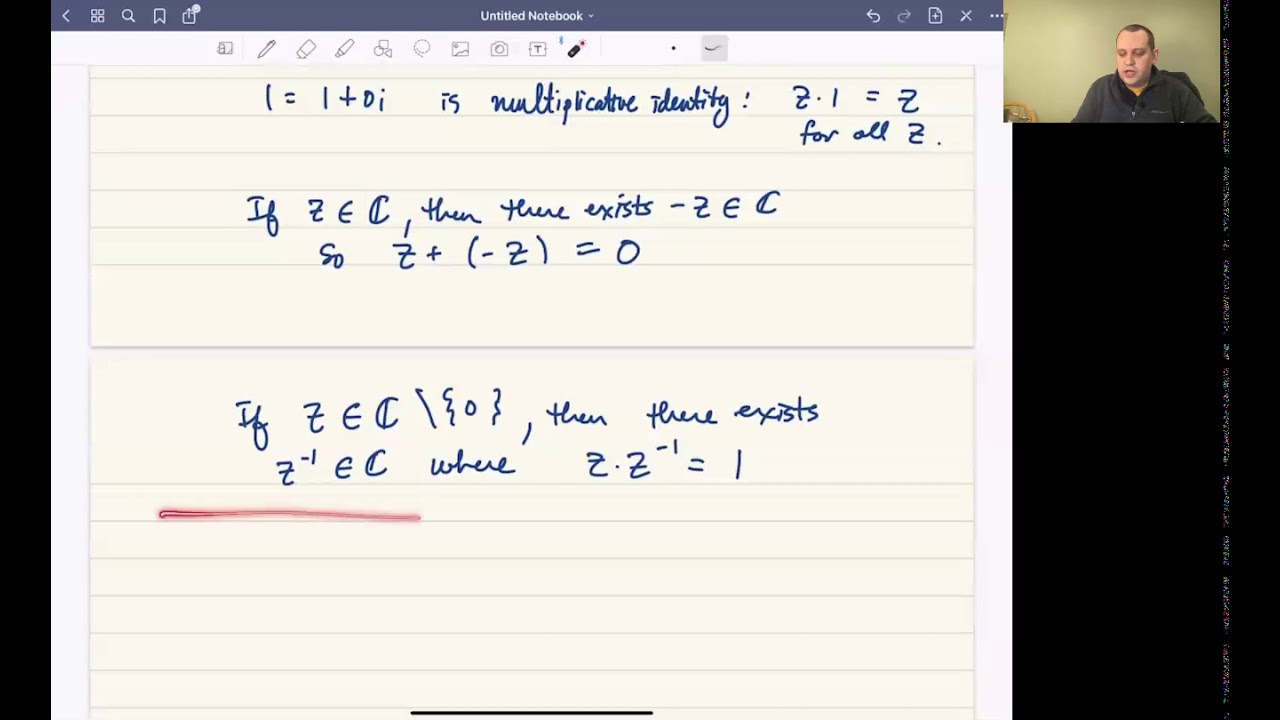 Untitled Notebook
1 = 1+0i is multiplicative identity: z·1 = z
for all z.
If z ∈ ℂ, then there exists -z ∈ ℂ
so z+ (-z) = 0
If z ∈ ℂ \ {0}, then there exists
z⁻¹ ∈ ℂ where z·z⁻¹ = 1